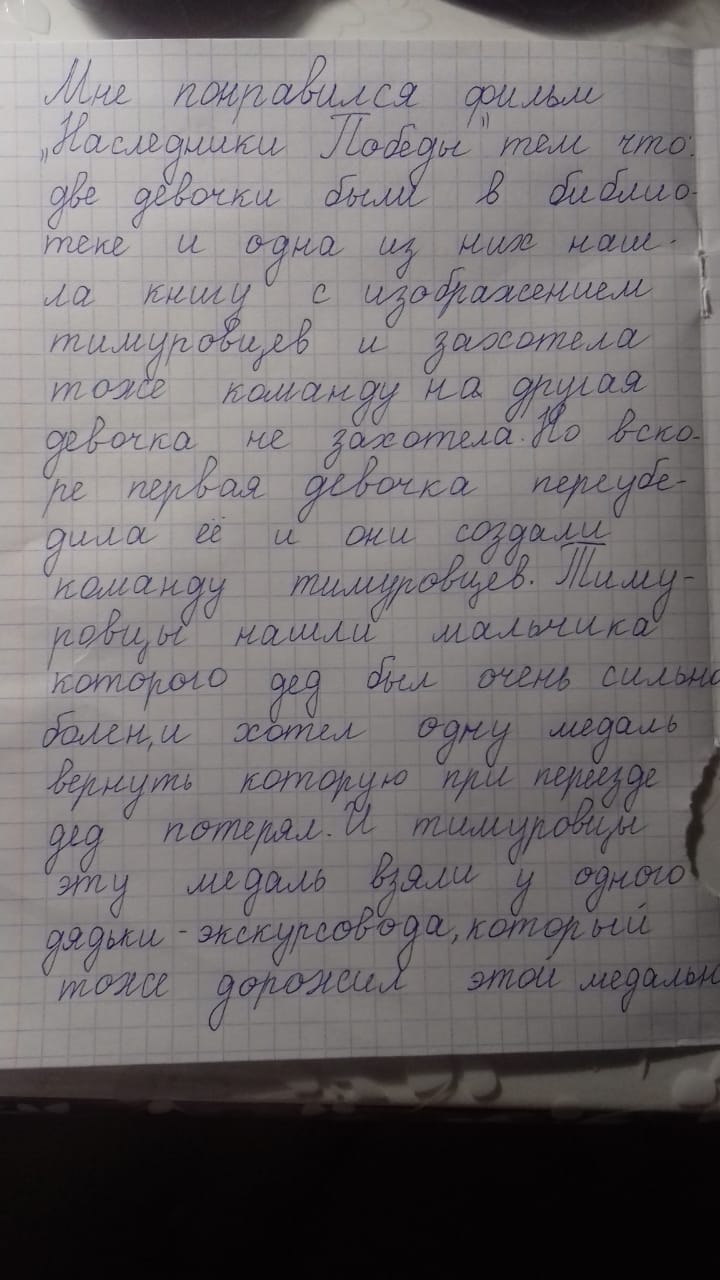 Мне понравился фильм
„Наследники Победы" тем что:
две девочки были в библио-
теке и одна из них наш-
ла книгу с изображением
тимуровцев и захотела
тоже команду на другая
девочка не захотела. Но вско-
ре первая девочка переубе-
дила её и они создали
команду тимуровцев. Тиму-
ровцы нашли мальчика
которого дед был очень сильно
болен, и хотел одну медаль
вернуть которую при переезде
дед потерял. И тимуровцы
эту медаль взяли у одного
дядьки - экскурсовода, который
тоже дорожил этой медалью